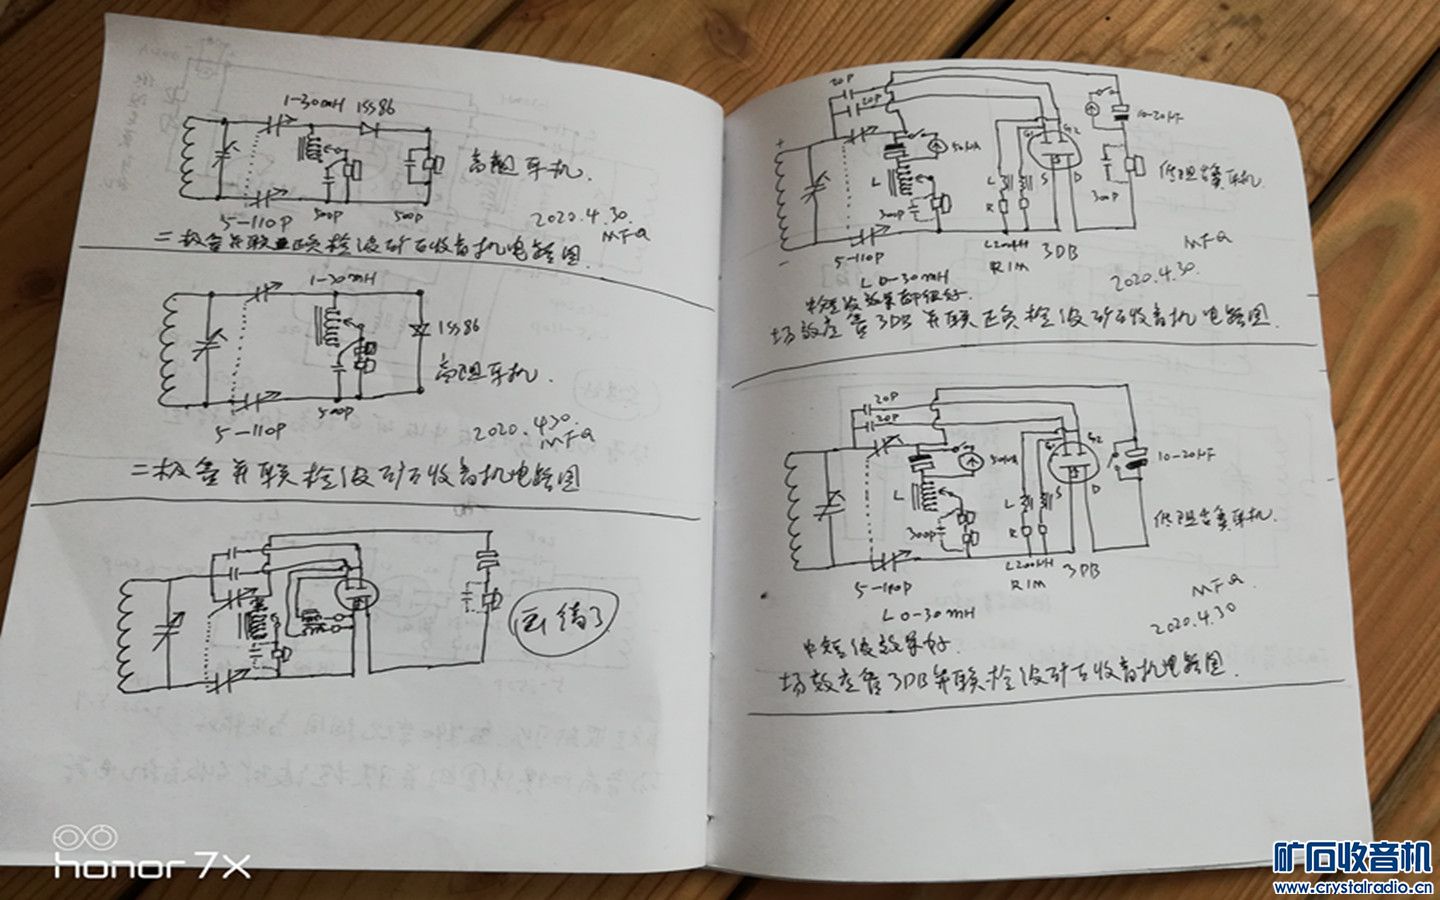 1-30mH 1SS86
高阻耳机.
5-110P
500P
500P
2020.4.30.
MFQ
二极管并联正负检波矿石收音机电路图.
1-30mH
1SS86
高阻耳机.
500P
5-110P
2020.4.30.
MFQ
二极管并联检波矿石收音机电路图
画错了
20P
20P
50μA
G1
G2
10-20μF
L
300P
L
R
S
D
300P
低阻古董耳机.
5-110P
L200μH
R1M
3DB
MFQ
L0-30mH
2020.4.30.
中短波效果都很好.
场效应管3DB并联正负检波矿石收音机电路图.
20P
20P
50μA
G1
G2
10-20μF
L
300P
L
R
S
D
低阻古董耳机.
5-110P
L200μH
R1M
3DB
MFQ
L0-30mH
2020.4.30
中短波效果好.
场效应管3DB并联检波矿石收音机电路图.
honor 7X
矿石收音机
www.crystalradio.cn